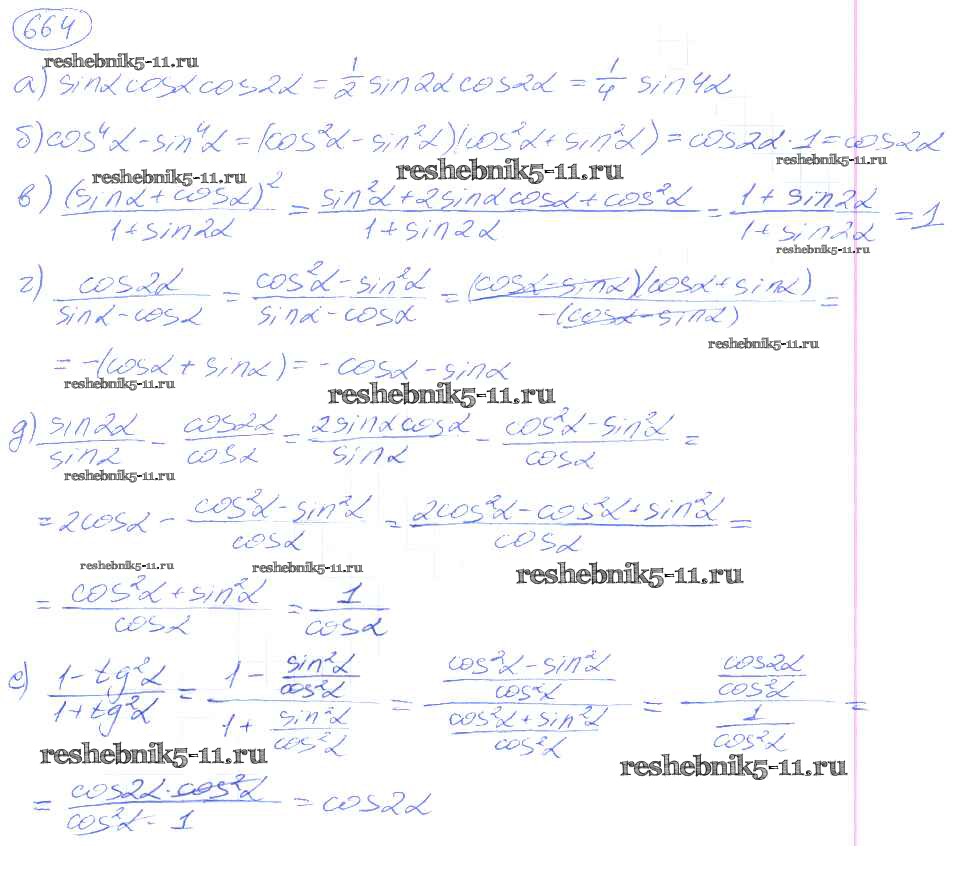 664
reshebnik5-11.ru
а) sinα cosα cos2α = 1/2 sin2α cos2α = 1/4 sin4α
б) cos⁴α - sin⁴α = (cos²α - sin²α)(cos²α + sin²α) = cos2α · 1 = cos2α
reshebnik5-11.ru reshebnik5-11.ru reshebnik5-11.ru
в) (sinα + cosα)² / (1 + sin2α) = (sin²α + 2sinα cosα + cos²α) / (1 + sin2α) = (1 + sin2α) / (1 + sin2α) = 1
reshebnik5-11.ru
г) cos2α / (sinα - cosα) = (cos²α - sin²α) / (sinα - cosα) = (cosα - sinα)(cosα + sinα) / -(cosα - sinα) =
reshebnik5-11.ru
= -(cosα + sinα) = -cosα - sinα
reshebnik5-11.ru reshebnik5-11.ru
д) sin2α / sinα - cos2α / cosα = 2sinα cosα / sinα - (cos²α - sin²α) / cosα =
reshebnik5-11.ru
= 2cosα - (cos²α - sin²α) / cosα = (2cos²α - cos²α + sin²α) / cosα =
reshebnik5-11.ru reshebnik5-11.ru reshebnik5-11.ru
= (cos²α + sin²α) / cosα = 1 / cosα
е) (1 - tg²α) / (1 + tg²α) = (1 - sin²α / cos²α) / (1 + sin²α / cos²α) = ((cos²α - sin²α) / cos²α) / ((cos²α + sin²α) / cos²α) = (cos2α / cos²α) / (1 / cos²α) =
reshebnik5-11.ru reshebnik5-11.ru
= cos2α · cos²α / cos²α · 1 = cos2α